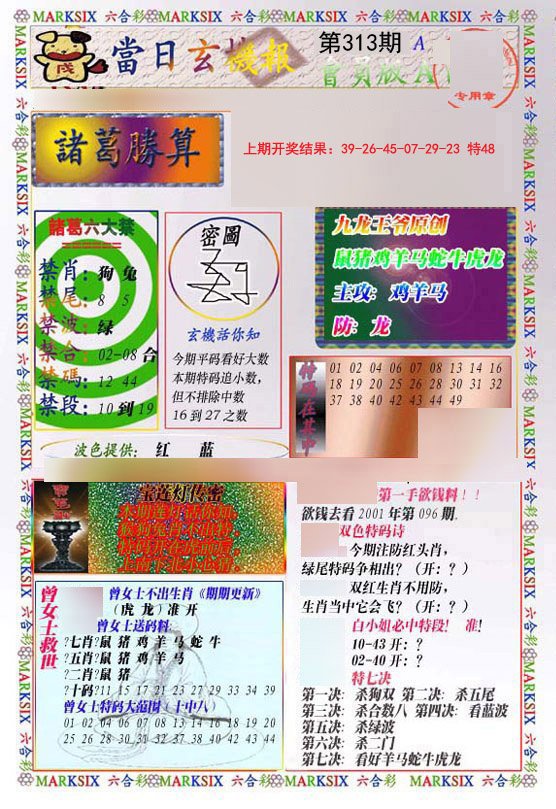 MARKSIX 六合彩 MARKSIX 六合彩 MARKSIX 六合彩 MARKSIX 六合彩 MARKSIX 六合彩
當日玄機報
第313期 A
會員版A
专用章
諸葛勝算
上期开奖结果：39-26-45-07-29-23 特48
諸葛六大禁
禁肖：狗 兔
禁尾：8 5
禁波：绿
禁合：02-08 合
禁碼：12 44
禁段：10 到 19
密圖
玄機話你知
今期平码看好大数
本期特码追小数，
但不排除中数
16 到 27 之数
九龙王爷原创
鼠猪鸡羊马蛇牛虎龙
主攻：鸡羊马
防：龙
特码在其中
01 02 04 06 07 08 13 14 16
18 19 20 25 26 28 30 31 32
37 38 40 42 43 44 49
波色提供： 红 蓝
宝莲灯传密
曾女士救世
曾女士不出生肖《期期更新》
（虎 龙）准 开
曾女士送码料：
?七肖?鼠 猪 鸡 羊 马 蛇 牛
?五肖?鼠 猪 鸡 羊 马
?二肖?鼠 猪
?十码?11 15 17 21 23 27 29 33 34 39
曾女士特码大范围（十中八）
01 02 04 06 07 08 13 14 16 18 19 20
25 26 28 30 31 32 37 38 40 42 43 44
第一手欲钱料！！
欲钱去看 2001 年第 096 期.
双色特码诗
今期注防红头肖，
绿尾特码争相出？（开：？）
双红生肖不用防，
生肖当中它会飞？（开：？）
白小姐必中特段！ 准！
10-43 开：？
02-40 开：？
特七决
第一决：杀狗双 第二决：杀五尾
第三决：杀合数八 第四决：看蓝波
第五决：杀绿波
第六决：杀二门
第七决：看好羊马蛇牛虎龙
MARKSIX 六合彩 MARKSIX 六合彩 MARKSIX 六合彩 MARKSIX 六合彩 MARKSIX 六合彩